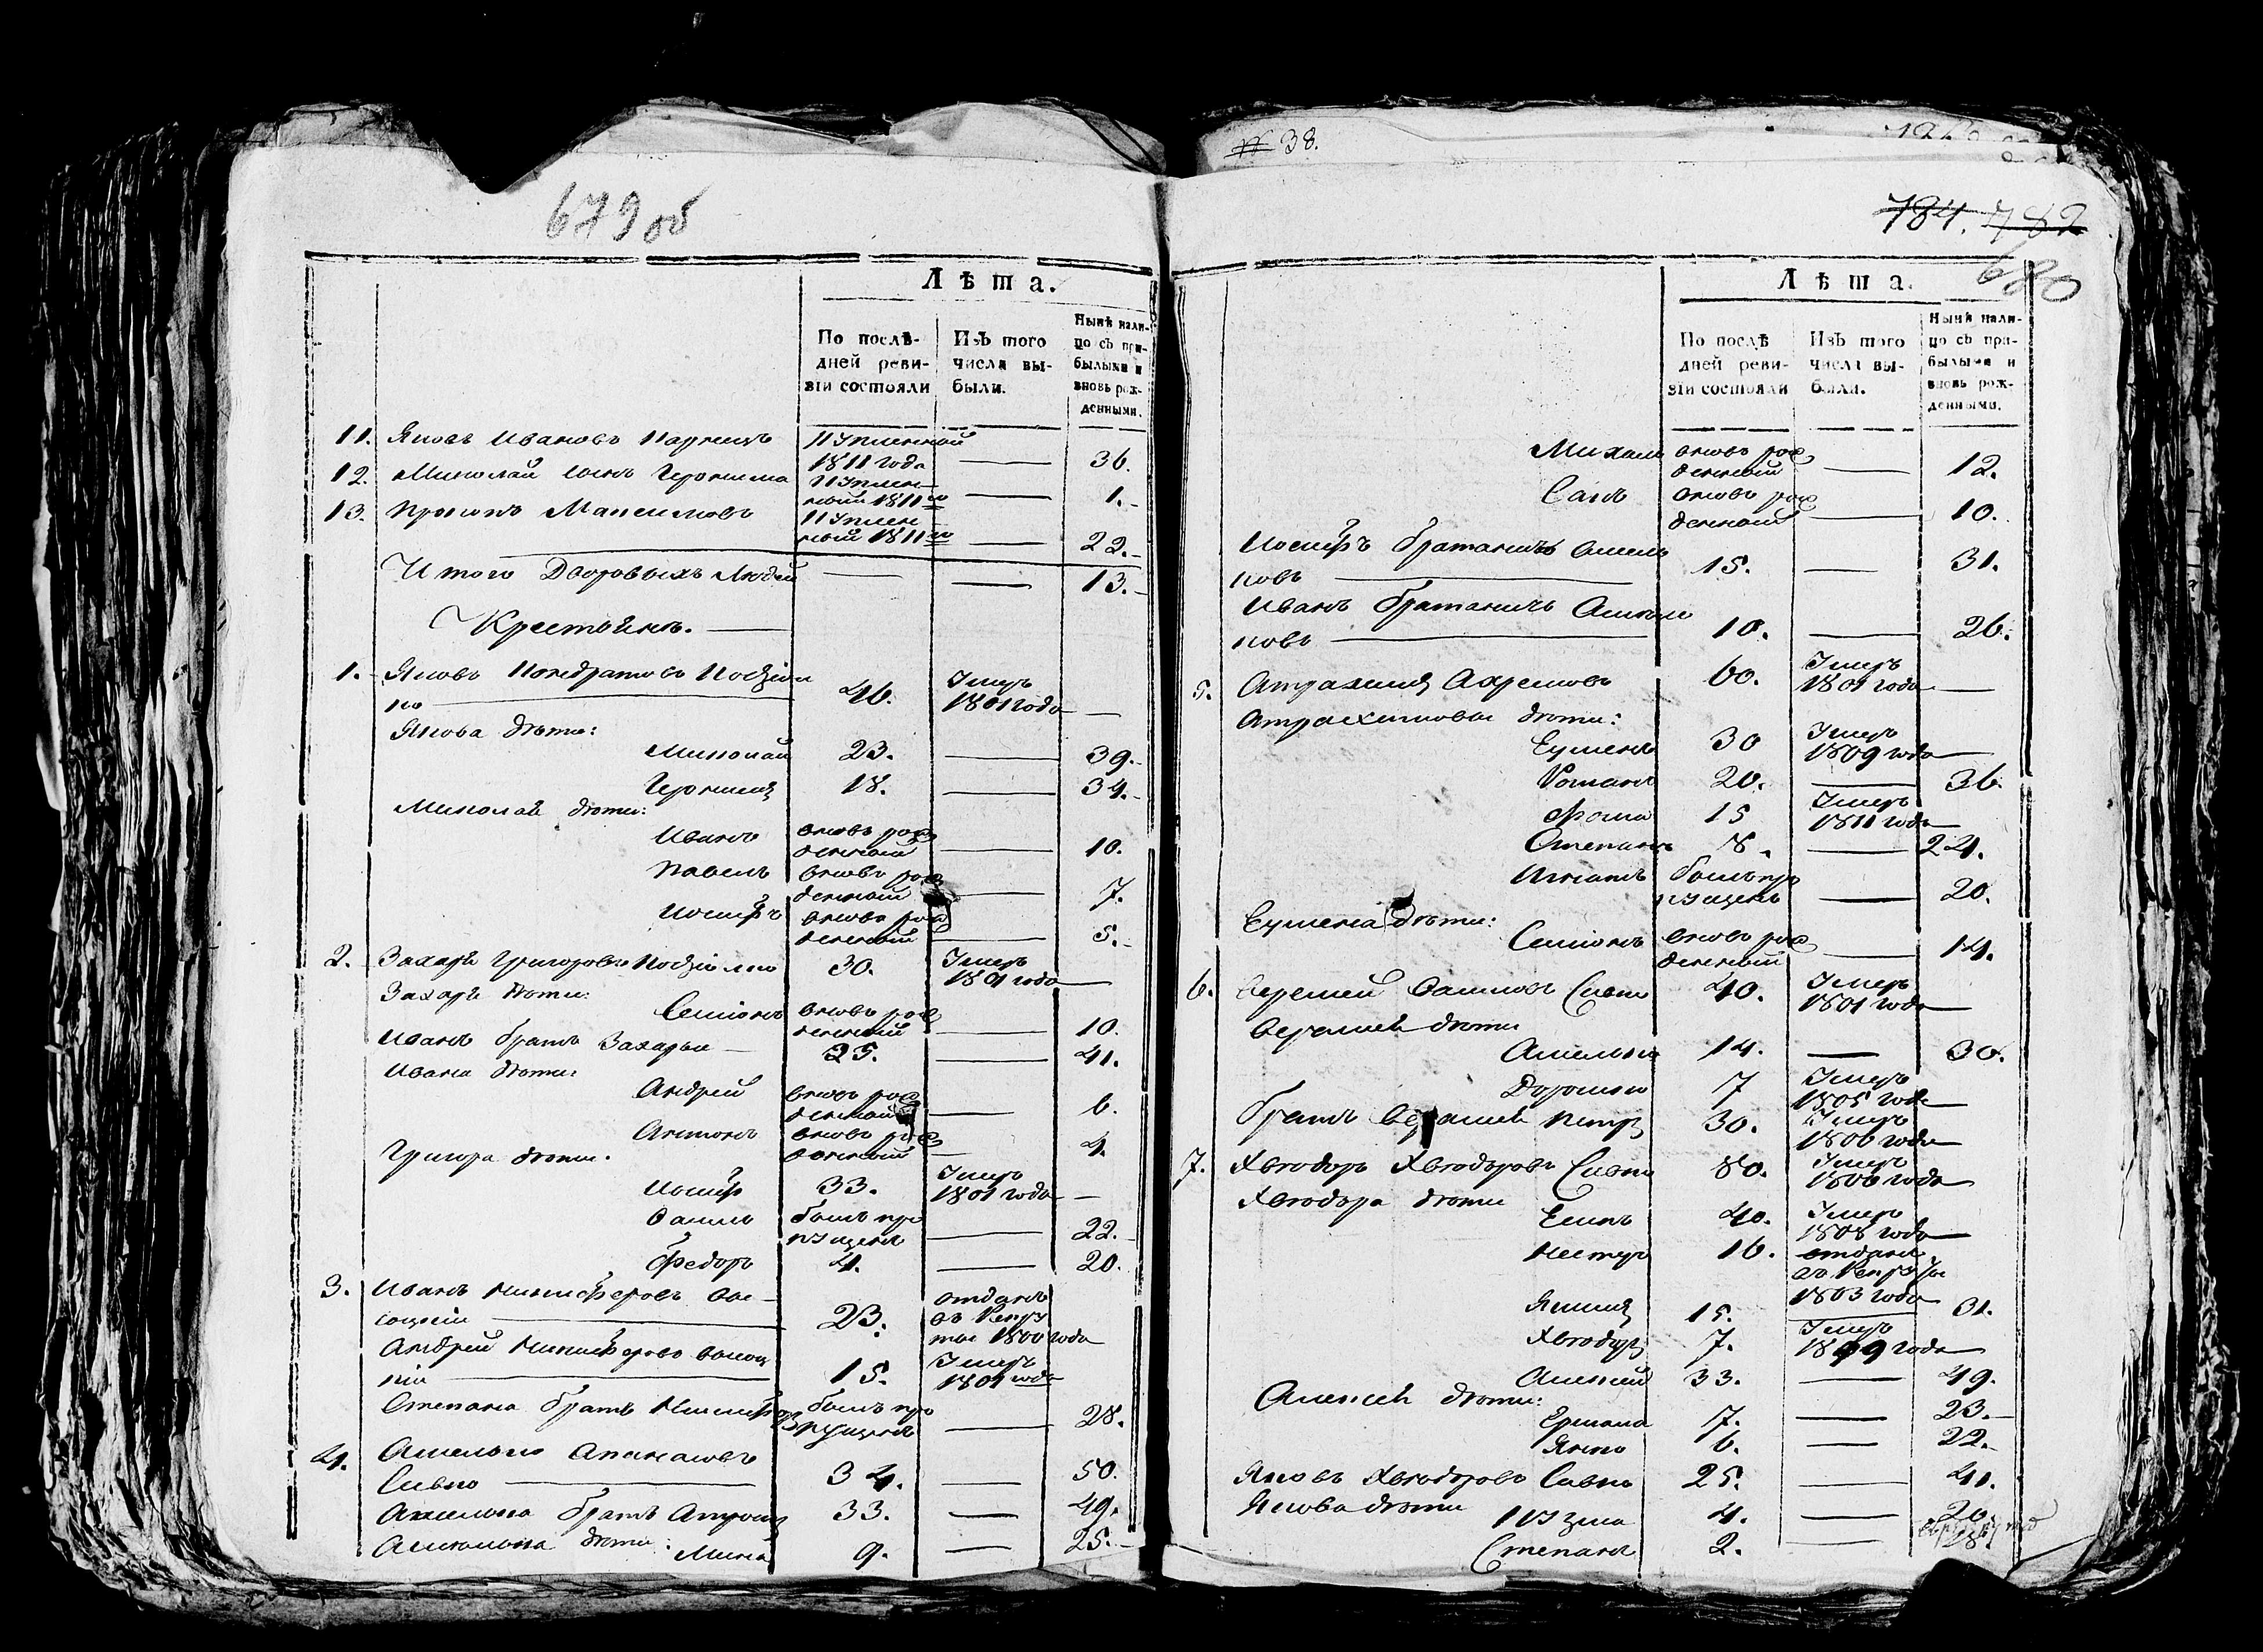 679 об
Лѣта.
По послѣ-
дней реви-
зіи состояли
Изъ того
числа вы-
были.
Нынѣ нали-
цо съ при-
былыми и
вновь рож-
денными.
11. Яковъ Ивановъ Купленной
1811 года — 36.
12. Миколай сынъ Геронима Куплен-
ный 1811го — 1.
13. Прокопъ Максимовъ Куплен-
ный 1811го — 22.
Итого Дворовыхъ Людей — — 13.
Крестьянъ. —
1. Яковъ Кондратовъ
ко — 46. Умеръ
1801 года —
Якова дѣти:
Миколай 23. — 39.
Геронимъ 18. — 34.
Миколая дѣти:
Иванъ вновь рож
денный — 10.
Павелъ вновь рож
денный — 7.
Иосифъ вновь рож
денный — 5.
2. Захаръ Григоровъ 30. Умеръ
1801 года —
Захара дѣти:
Семіонъ вновь рож
денный — 10.
Иванъ братъ Захарья — 25. — 41.
Ивана дѣти:
Андрей вновь рож
денный — 6.
Антонъ вновь рож
денный — 4.
Григора дѣти.
Иосифъ 33. Умеръ
1801 года —
Василь былъ про
пущенъ — 22.
Федоръ 4. — 20.
3. Иванъ Никифоровъ Вы-
соцкій — 23. отданъ
въ Рекру
ты 1800 года
Андрей Никифоровъ Высоц
кій — 15. Умеръ
1801 года
Степанъ братъ Никифора былъ про
пущенъ — 28.
4. Амелько Апанасовъ
Сивко — 34. — 50.
Амелька братъ 33. — 49.
Амелька дѣти: Мина 9. — 25.
38.
784. 782
680
Лѣта.
По послѣ
дней реви-
зіи состояли
Изъ того
числа вы-
были.
Нынѣ нали-
цо съ при-
былыми и
вновь рож-
денными.
Михаль вновь рож
денный — 12.
Сакъ вновь рож
денный — 10.
Иосифъ братаничъ Амель
ковъ — 15. — 31.
Иванъ братаничъ Амель
ковъ — 10. — 26.
5. Атрахимъ Ахремовъ 60. Умеръ
1801 года —
Атрахимовы дѣти:
Еуменъ 30 Умеръ
1809 года —
Романъ 20. — 36.
Фома 15 Умеръ
1811 года —
Степанъ 8. — 24.
Игнатъ былъ про
пущенъ — 20.
Еумена дѣти:
Семіонъ вновь рож
денный — 14.
6. Веремей Васильовъ Сивко 40. Умеръ
1801 года —
Веремея дѣти
Амелько 14. — 30.
Дорошко 7 Умеръ
1805 года —
братъ Веремея Петръ 30. Умеръ
1806 года —
7. Хведоръ Хведоровъ Сивко 80. Умеръ
1806 года
Хведора дѣти
Есипъ 40. Умеръ
1808 года —
Нестеръ 16. отданъ
въ Рекруты
1803 года
Якимъ 15. — 31.
Хведоръ 7. Умеръ
1799 года
Алексей 33. — 49.
Алексея дѣти:
Ермола 7. — 23.
Янко 6. — 22.
Яковъ Хведоровъ Сивко 25. — 41.
Якова дѣти Кузма 4. — 20.
Степанъ 2. — 18